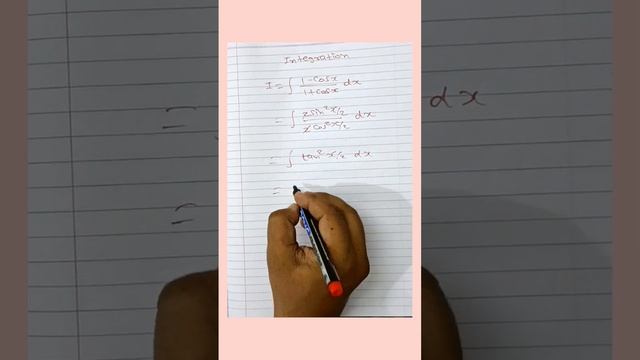 Integration
I = ∫ 1-cosx / 1+cosx dx
= ∫ 2sin²x/2 / 2cos²x/2 dx
= ∫ tan²x/2 dx
=